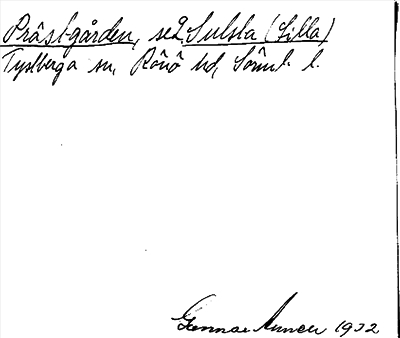 Prästgården, se Sulsta (Lilla)
Tystberga sn, Rönö hd, Sörml. l.
Gunnar 1932